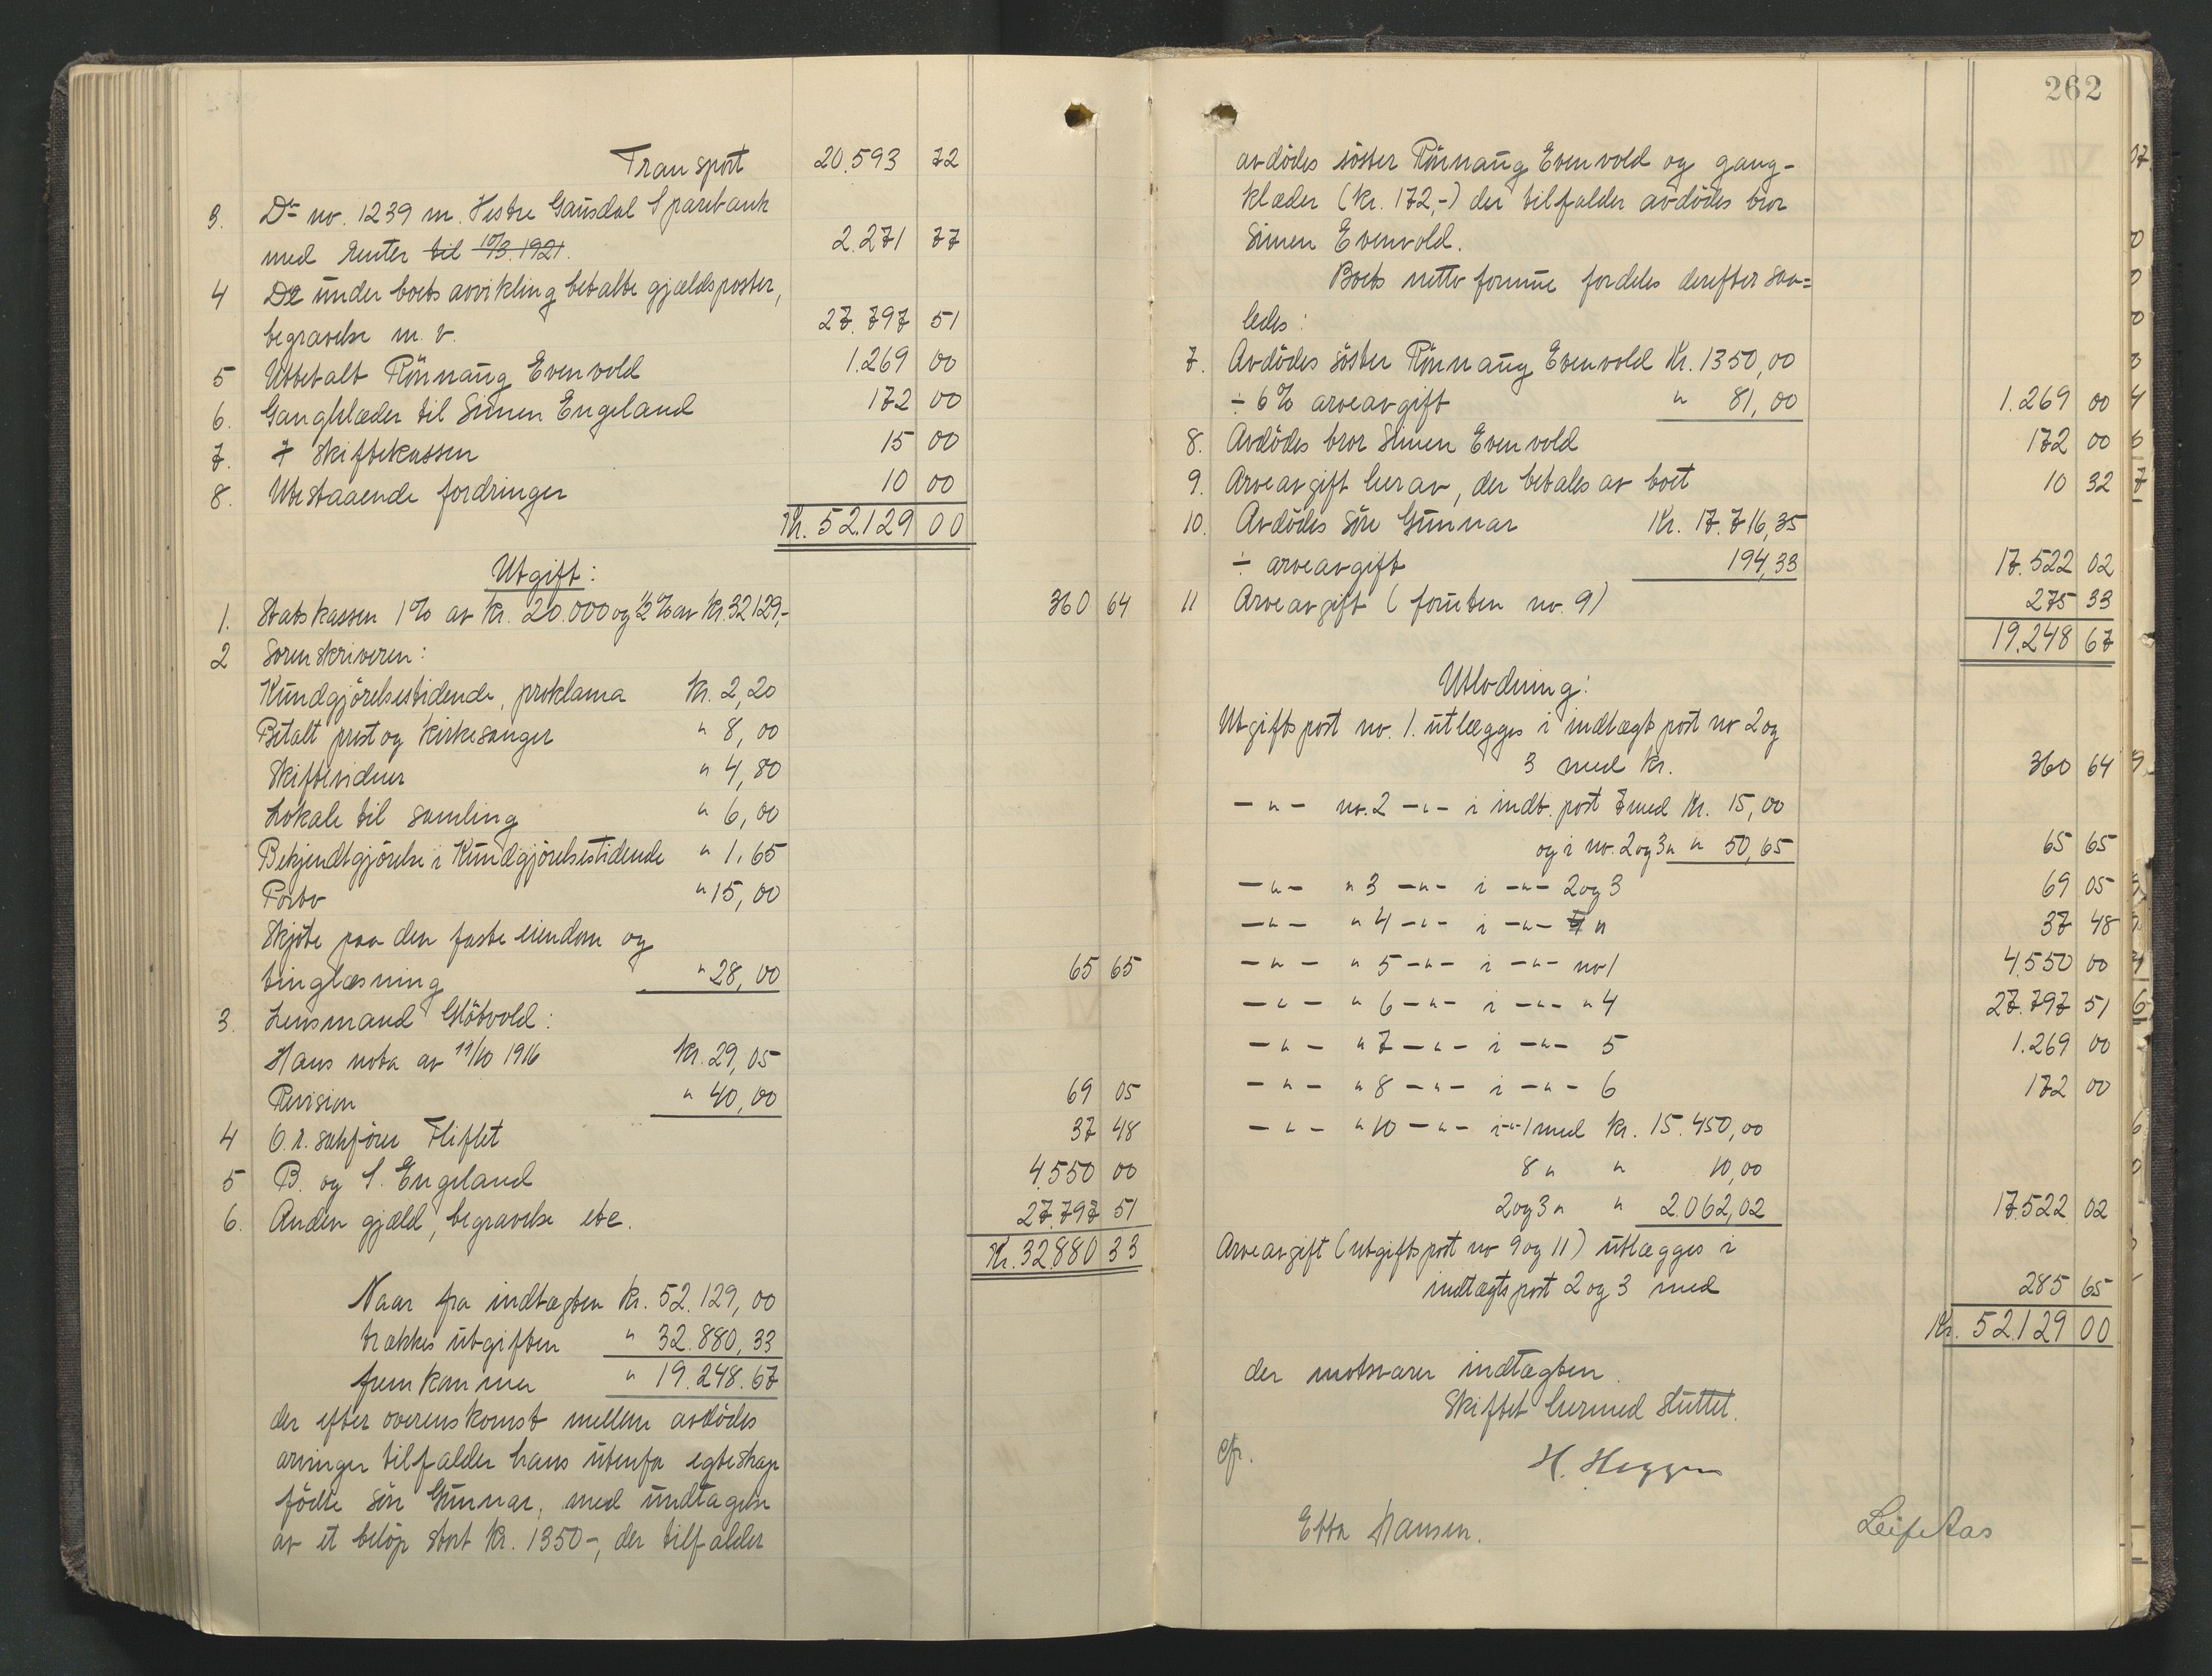 Transport 20.593 72
3. Do no. 1239 m. Vestre Gausdal Sparebank
med renter til 10/3.1921. 2.271 77
4 De under boets avvikling betalte gjældsposter,
begravelse m. v. 27.797 51
5 Utbetalt Rönnaug Evenvold 1.269 00
6. Gangklæder til Simen Engeland 172 00
7. Skiftekassen 15 00
8. Utestaaende fordringer 10 00
Kr. 52.129 00
Utgift:
1. Statskassen 1% av Kr. 20.000 og ½% av Kr. 32129,- 360 64
2 Sorenskriveren:
Kundgjörelsestidende, proklama Kr. 2,20
Betalt prest og kirkesanger " 8,00
Skiftevidner " 4,80
Lokale til samling " 6,00
Bekjendtgjörelse i Kundgjörelsestidende " 1.65
Porto " 15,00
Skjöte paa den faste eiendom og
tinglæsning " 28,00 65 65
3. Lensmand Slåtvold:
Hans nota av 11/10 1916 Kr. 29,05
Revision " 40,00 69 05
4 O.r.sakförer Fliflet 37 48
5 B. og S. Engeland 4.550 00
6. Anden gjæld, begravelse etc. 27.797 51
Kr. 32.880 33
Naar fra indtægten Kr. 52.129,00
trækkes utgiften " 32.880,33
fremkommer " 19.248.67
der efter overenskomst mellem avdödes
arvinger tilfalder hans utenfor egteskap
födte sön Gunnar, med undtagelse
av et belöp stort Kr. 1350-, der tilfalder
262
avdödes söster Rönnaug Evenvold og gang-
klæder (Kr. 172,-) der tilfalder avdödes bror
Simen Evenvold.
Boets netto formue fordeles derefter saa=
ledes:
7. Avdödes söster Rönnaug Evenvold Kr. 1350,00
÷ 6% arveavgift " 81,00 1.269 00
8. Avdödes bror Simen Evenvold 172 00
9. Arveavgift herav, der betales av boet 10 32
10. Avdödes sön Gunnar Kr. 17.716,35
÷ arveavgift 194,33 17.522 02
11 Arveavgift (foruten no. 9) 275 33
19.248 67
Utlodning:
Utgiftspost no. 1. utlægges i indtægt post no 2 og
3 med Kr. 360 64
- " - no. 2 - " - i indt. post 7 med Kr. 15,00
og i no. 2 og 3 " " 50,65 65 65
- " - " 3 - " - i - " - 2 og 3 69 05
- " - " 4 - " - i - " - " 37 48
- " - " 5 - " - i - " - no 1 4.550 00
- " - " 6 - " - i - " - " 4 27.797 51
- " - " 7 - " - i - " - 5 1.269 00
- " - " 8 - " - i - " - 6 172 00
- " - " 10 - " - i - " - 1 med Kr. 15.450,00
8 " " 10,00
2 og 3 " " 2.062,02 17.522 02
Arveavgift (utgiftspost no 9 og 11) utlægges i
indtægtspost 2 og 3 med 285 65
Kr. 52.129 00
der motsvarer indtægten.
Skiftet hermed sluttet.
cfr.
H. Heggen
Etta Hansen.
Leif Aas